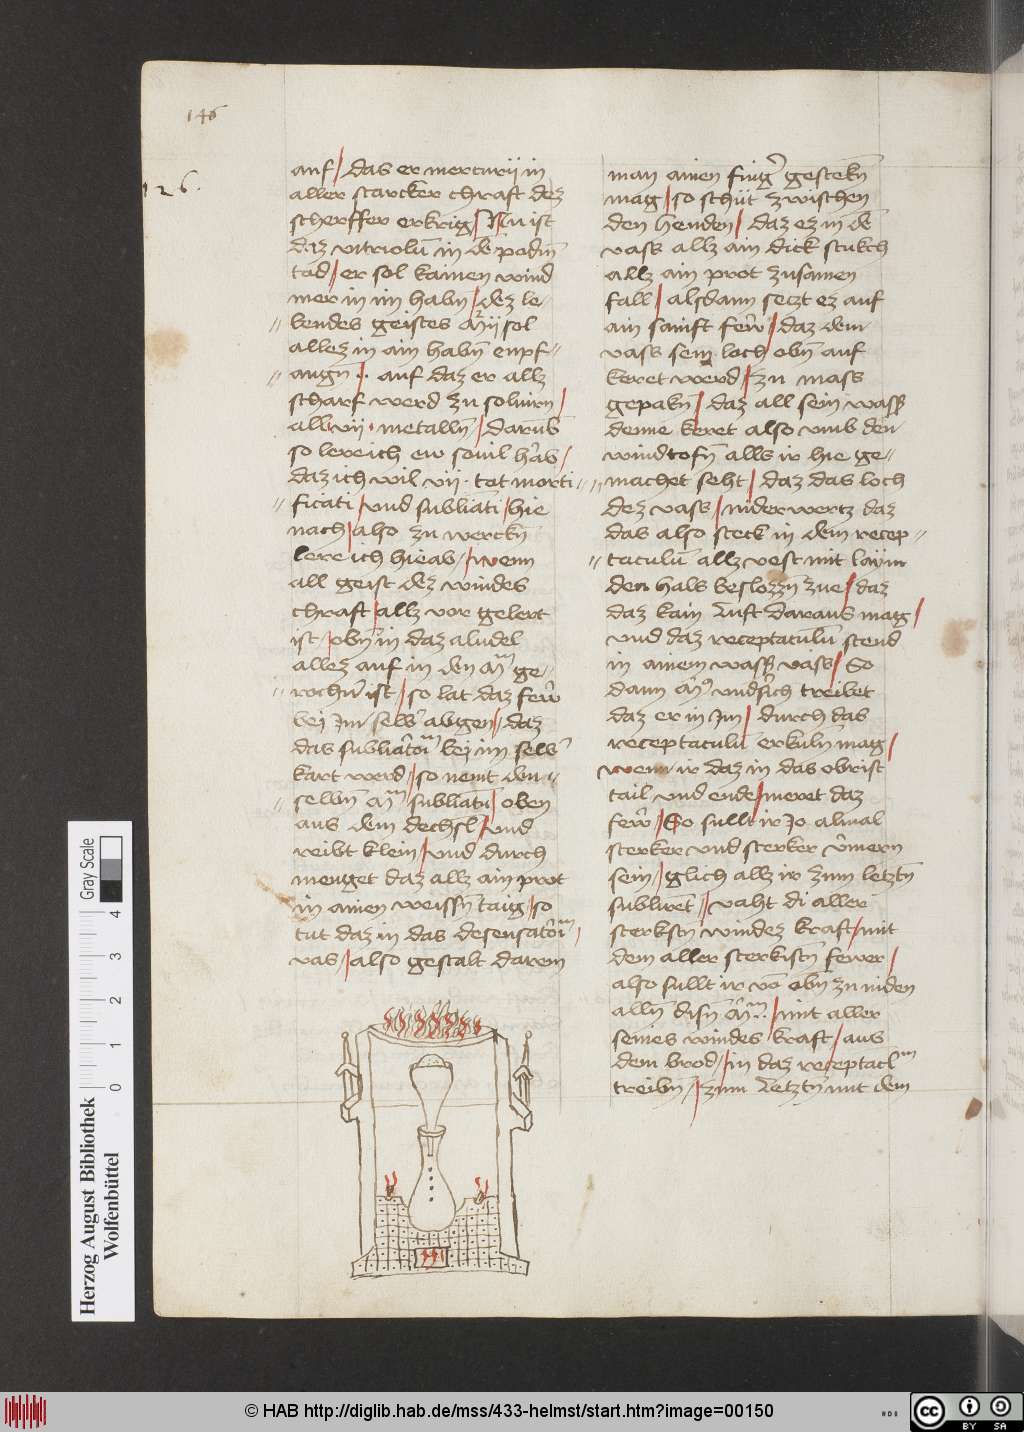 146
126.
auf / das er mercurij in
aller starcker chraft dez
scherffer erkrig / Nu ist
daz vitriolū in dē podīn
tod / er sol kainen wind
mer in im habn / dez le-
bendes geistes sol
allez in ain habn̄ enpf-
angn̄ .. auf daz er allz
scharf werd zu soluirn /
all vij · metalln̄ / darūb
so lere ich ew souil h'ab /
daz ich wil vij · tot morti
ficati / vnd subliati / hie
nach / also zu werckn̄
lere ich hieab / wenn
all geist dez windes
chraft / allz vor gelert
ist / obn̄ in daz aludel
allez auf in den ge-
rochn̄ ist / so lat daz fewr
bei Im selb' abgen / daz
das bei im selb'
kart werd / so nemt den
selbn̄ / oben
aus dem dechsl / vnd
reibt klein / vnd durch
menget daz allz ain prot
in ainen weissn̄ taig / so
tut daz in das
vas / also gestalt darein
man ainen fing' gestekn̄
mag / so schüt zwischen
den henden / daz ez in dē
vass allz ain dick stukch
allz ain prot zusamen
fall / alsdann setzt ez auf
ain sanift fewr / daz dem
vass sein loch obn̄ auf
keret werd / zu mass
gepakn̄ / daz all sein wass'
denne keret also vmb den
windtofn̄ alls ir hie ge-
machet seht / daz das loch
dez vass / niderwertz daz
das also steck in dem recep-
taculū allz vest mit laym
den hals beslozzn̄ zue / daz
daz kain luft daraus mag /
vnd daz receptaculū stend
in ainem wass' vass / So
dann vnd sich treibet
daz er in Im / durch das
receptaculū erkuln̄ mag /
wenn ir daz in das obrist
tail vnd ende / meret daz
fewr / So sullt ir Jo almal
sterker vnd sterker
sein / glich allz ir zum letztn̄
/ vaht di aller
sterkstn̄ windez kraft / mit
dem aller sterkistn̄ fewer /
also sullt ir vō obn̄ zu niden
alln̄ disn̄ / mit aller
seines windes kraft / aus
dem brod / in daz receptacl̄m
treibn̄ / zum letztn̄ mit dem
Herzog August Bibliothek
Wolfenbüttel
0 1 2 3 4
Gray Scale
© HAB http://diglib.hab.de/mss/433-helmst/start.htm?image=00150
cc BY SA